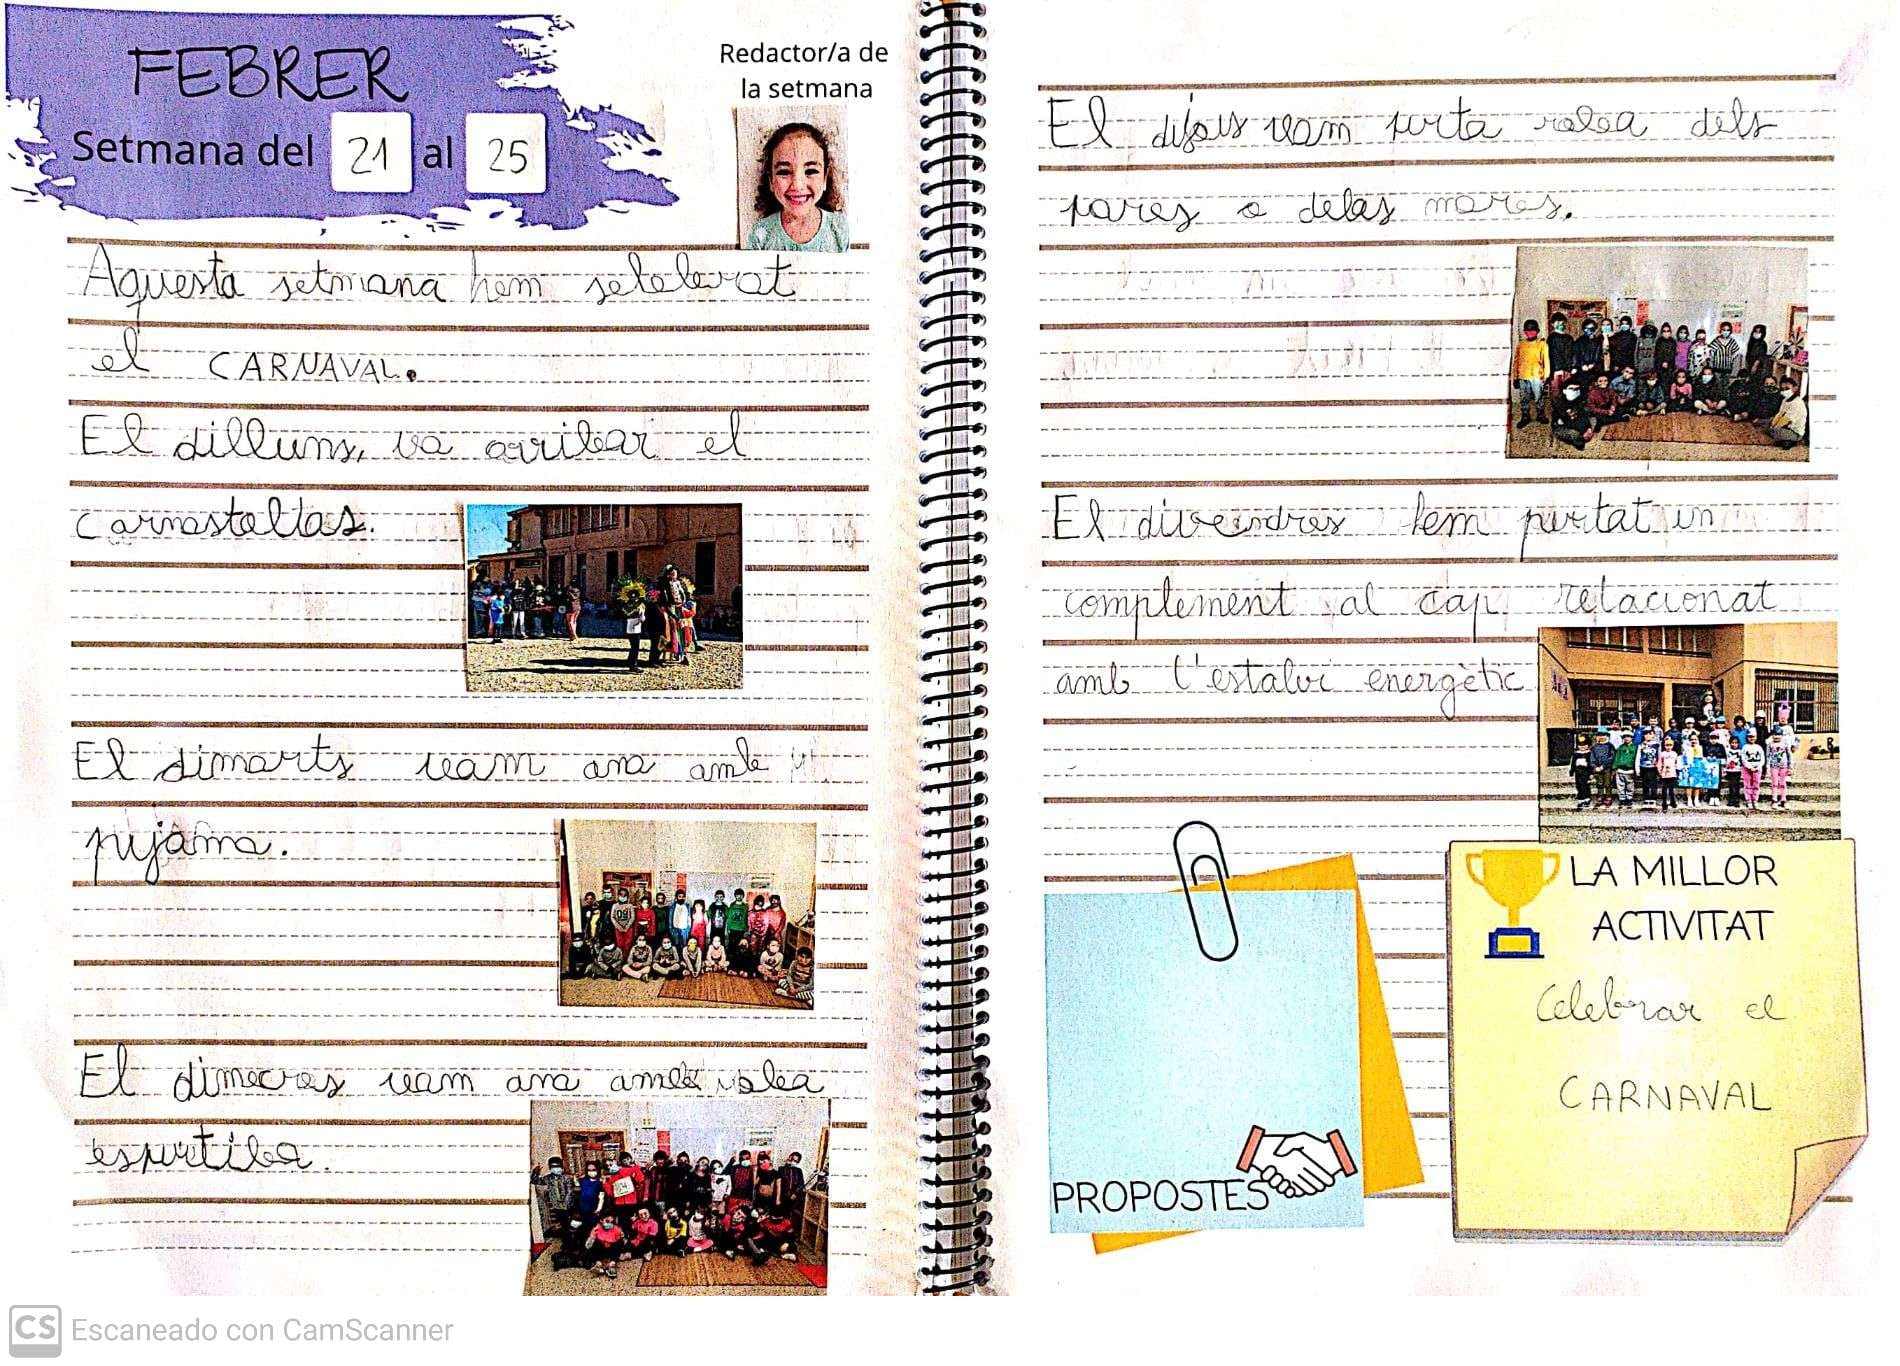 FEBRER
Setmana del 21 al 25
Redactor/a de
la setmana
Aquesta setmana hem selebrat
el CARNAVAL.
El dilluns, va arribar el
carnastoltas.
El dimarts vam ana amb
pijama.
El dimecres vam ana amb roba
esportiba.
El dijous vam purta roba dels
pares o delas mares.
El divendres hem portat un
complement al cap relacionat
amb l'estalvi energètic
PROPOSTES
LA MILLOR
ACTIVITAT
Celebrar el
CARNAVAL
CS Escaneado con CamScanner